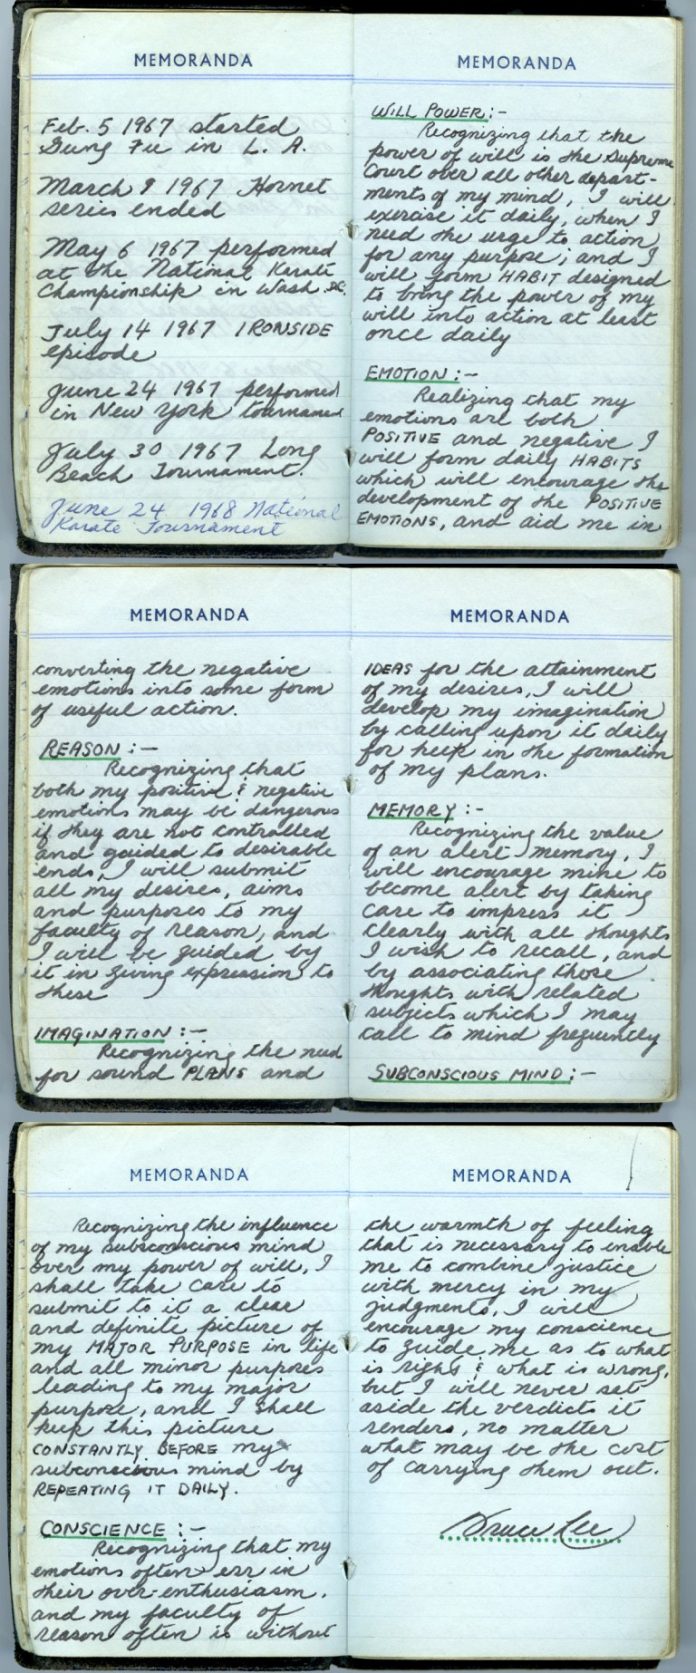 MEMORANDA
Feb. 5 1967 started
Gung Fu in L. A.
March 9 1967 Hornet
series ended
May 6 1967 performed
at the National Karate
Championship in Wash DC.
July 14 1967 IRONSIDE
episode
June 24 1967 performed
in New York tournament
July 30 1967 Long
Beach Tournament.
June 24 1968 National
Karate Tournament
MEMORANDA
WILL POWER:-
Recognizing that the
power of will is the Supreme
Court over all other depart-
ments of my mind, I will
exercise it daily, when I
need the urge to action
for any purpose; and I
will form HABIT designed
to bring the power of my
will into action at least
once daily
EMOTION:-
Realizing that my
emotions are both
POSITIVE and negative I
will form daily HABITS
which will encourage the
development of the POSITIVE
EMOTIONS, and aid me in
MEMORANDA
converting the negative
emotions into some form
of useful action.
REASON:-
Recognizing that
both my positive & negative
emotions may be dangerous
if they are not controlled
and guided to desirable
ends, I will submit
all my desires, aims
and purposes to my
faculty of reason, and
I will be guided by
it in giving expression to
these
IMAGINATION:-
Recognizing the need
for sound PLANS and
MEMORANDA
IDEAS for the attainment
of my desires, I will
develop my imagination
by calling upon it daily
for help in the formation
of my plans.
MEMORY:-
Recognizing the value
of an alert memory, I
will encourage mine to
become alert by taking
care to impress it
clearly with all thoughts
I wish to recall, and
by associating those
thoughts with related
subjects which I may
call to mind frequently
SUBCONSCIOUS MIND:-
MEMORANDA
Recognizing the influence
of my subconscious mind
over my power of will, I
shall take care to
submit to it a clear
and definite picture of
my MAJOR PURPOSE in life
and all minor purposes
leading to my major
purpose, and I shall
keep this picture
CONSTANTLY BEFORE my
subconscious mind by
REPEATING IT DAILY.
CONSCIENCE:-
Recognizing that my
emotions often err in
their over-enthusiasm,
and my faculty of
reason often is without
MEMORANDA
the warmth of feeling
that is necessary to enable
me to combine justice
with mercy in my
judgments, I will
encourage my conscience
to guide me as to what
is right & what is wrong,
but I will never set
aside the verdicts it
renders, no matter
what may be the cost
of carrying them out.
Bruce Lee